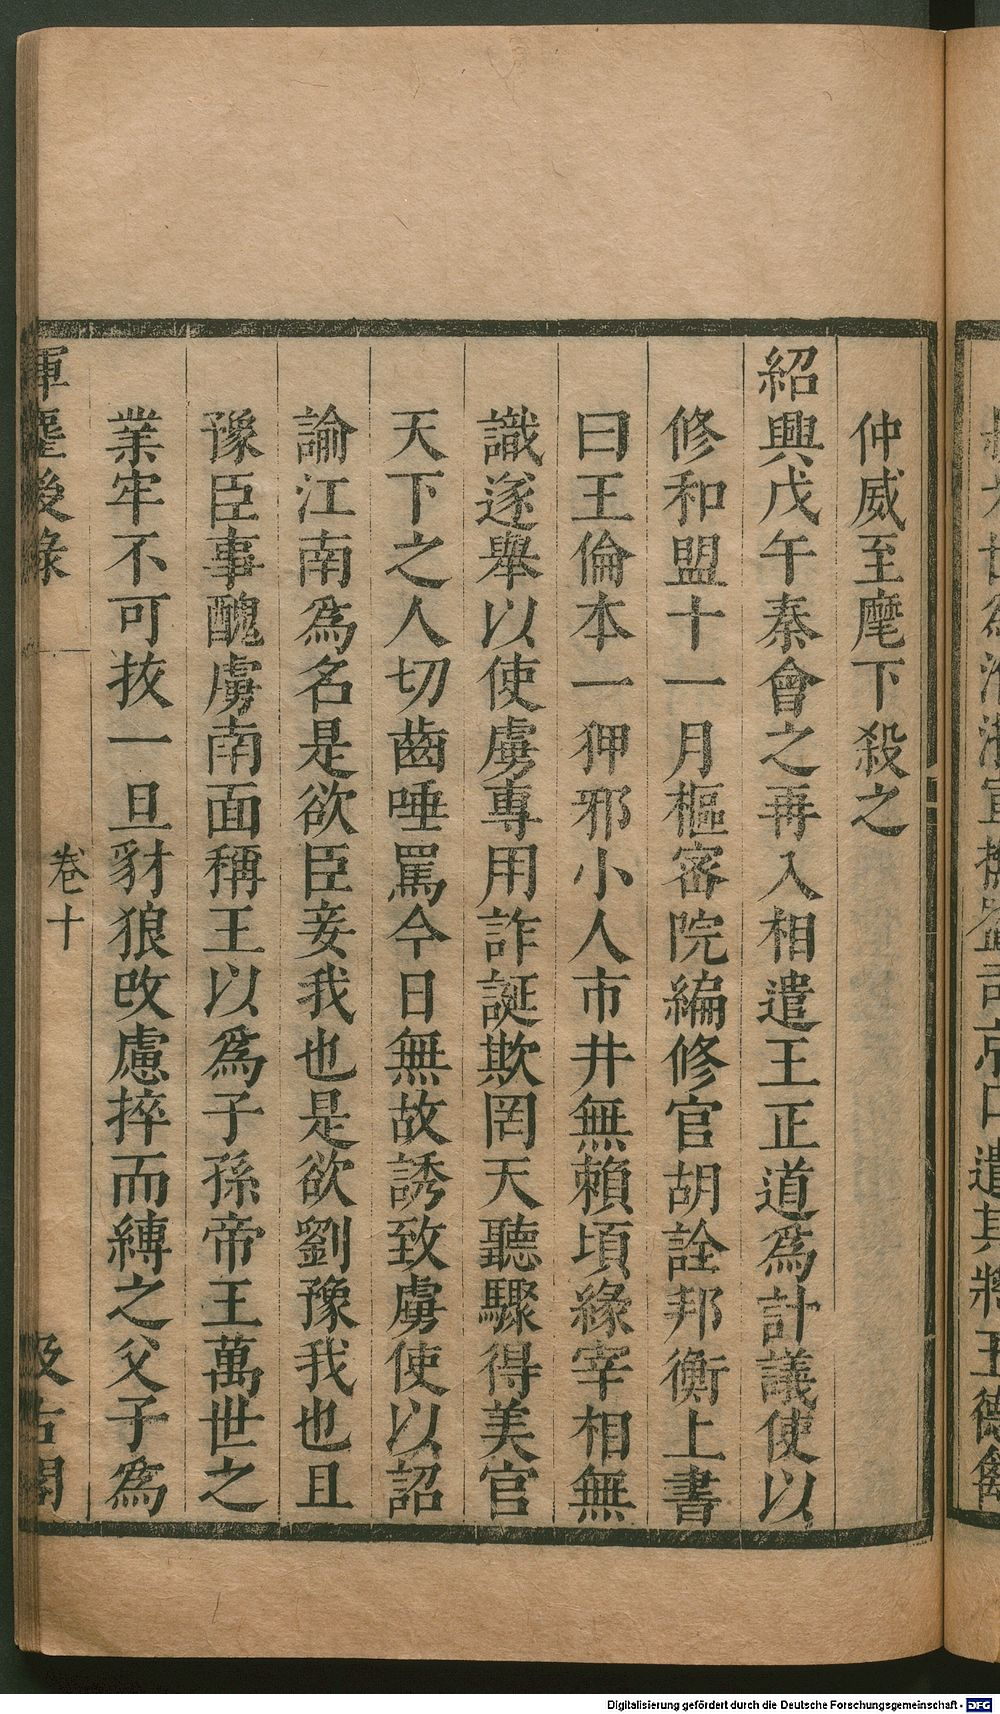 仲威至麾下殺之
紹興戊午秦會之再入相遣王正道爲計議使以
修和盟十一月樞密院編修官胡詮邦衡上書
曰王倫本一狎邪小人市井無賴頃緣宰相無
識遂舉以使虜專用詐誕欺罔天聽驟得美官
天下之人切齒唾罵今日無故誘致虜使以詔
諭江南爲名是欲臣妾我也是欲劉豫我也且
豫臣事醜虜南面稱王以爲子孫帝王萬世之
業牢不可拔一旦豺狼改慮捽而縛之父子爲
揮麈後錄
卷十
汲古閣
遣其將王德禽
Digitalisierung gefördert durch die Deutsche Forschungsgemeinschaft - DFG